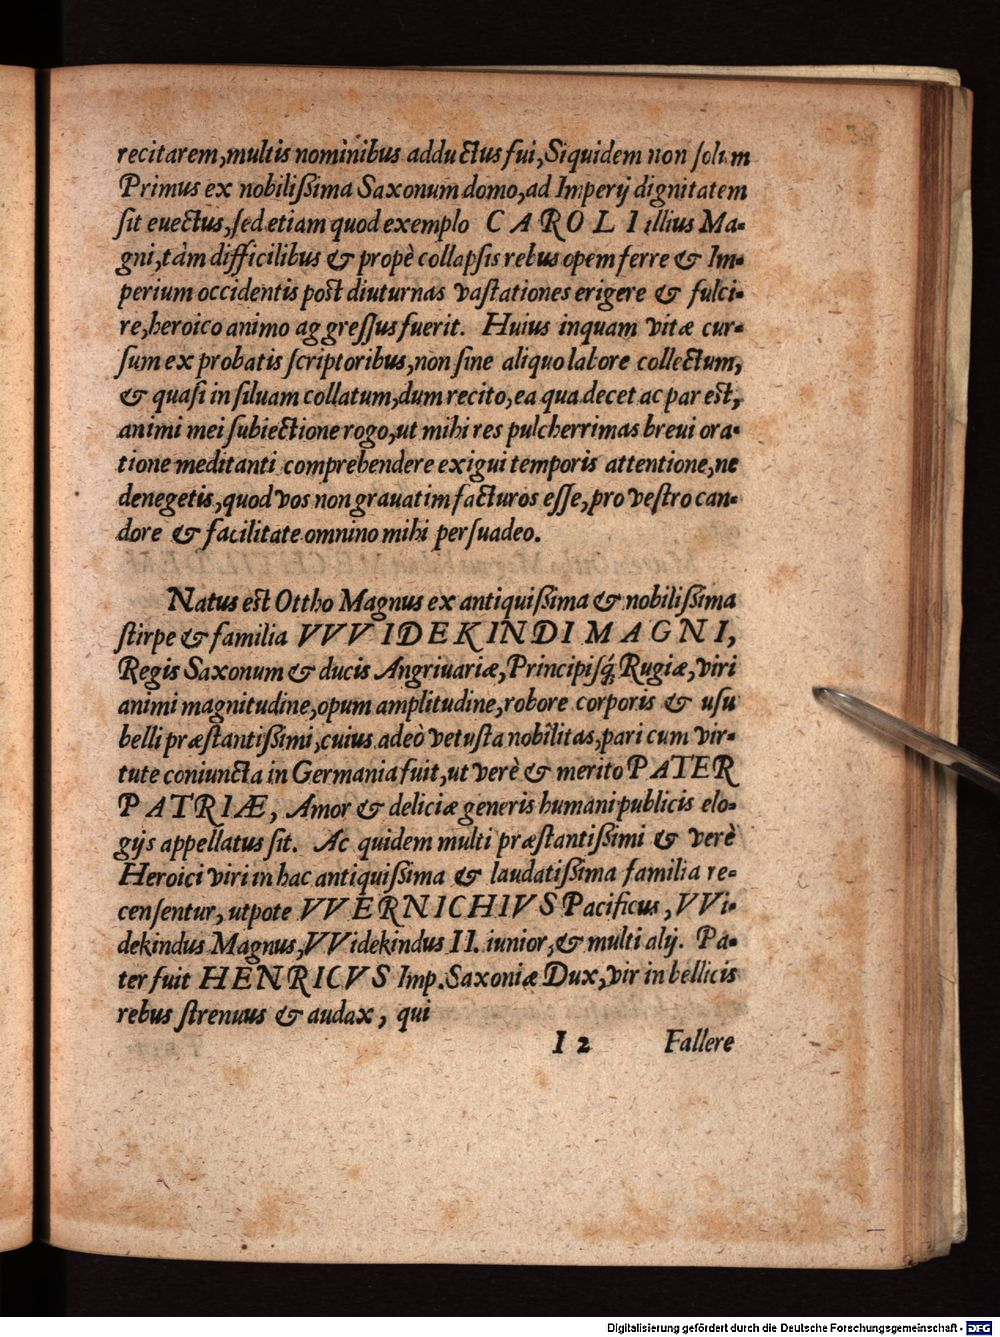 recitarem, multis nominibus adductus fui, Siquidem non solum
Primus ex nobilißima Saxonum domo, ad Imperij dignitatem
sit euectus, sed etiam quod exemplo CAROLI illius Ma-
gni, tàm difficilibus & propè collapsis rebus opem ferre & Im-
perium occidentis post diuturnas vastationes erigere & fulci-
re, heroico animo aggressus fuerit. Huius inquam vitæ cur-
sum ex probatis scriptoribus, non sine aliquo labore collectum,
& quasi in siluam collatum, dum recito, ea qua decet ac par est,
animi mei subiectione rogo, ut mihi res pulcherrimas breui ora-
tione meditanti comprehendere exigui temporis attentione, ne
denegetis, quod vos non grauatim facturos esse, pro vestro can-
dore & facilitate omnino mihi persuadeo.
Natus est Ottho Magnus ex antiquißima & nobilißima
stirpe & familia VVVIDEKINDI MAGNI,
Regis Saxonum & ducis Angriuariæ, Principisq́; Rugiæ, viri
animi magnitudine, opum amplitudine, robore corporis & usu
belli præstantißimi, cuius adeò vetusta nobilitas, pari cum vir-
tute coniuncta in Germania fuit, ut verè & merito PATER
PATRIÆ, Amor & deliciæ generis humani publicis elo-
gijs appellatus sit. Ac quidem multi præstantißimi & verè
Heroici viri in hac antiquißima & laudatißima familia re-
censentur, utpote VVERNICHIVS Pacificus, VVi-
dekindus Magnus, VVidekindus II. iunior, & multi alij. Pa-
ter fuit HENRICVS Imp. Saxoniæ Dux, vir in bellicis
rebus strenuus & audax, qui
I 2 Fallere
Digitalisierung gefördert durch die Deutsche Forschungsgemeinschaft - DFG